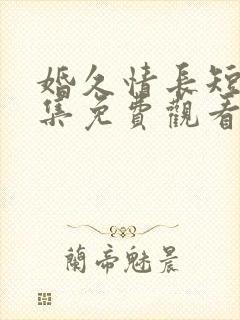 婚久情長短
集免費觀看
蘭帝魅晨